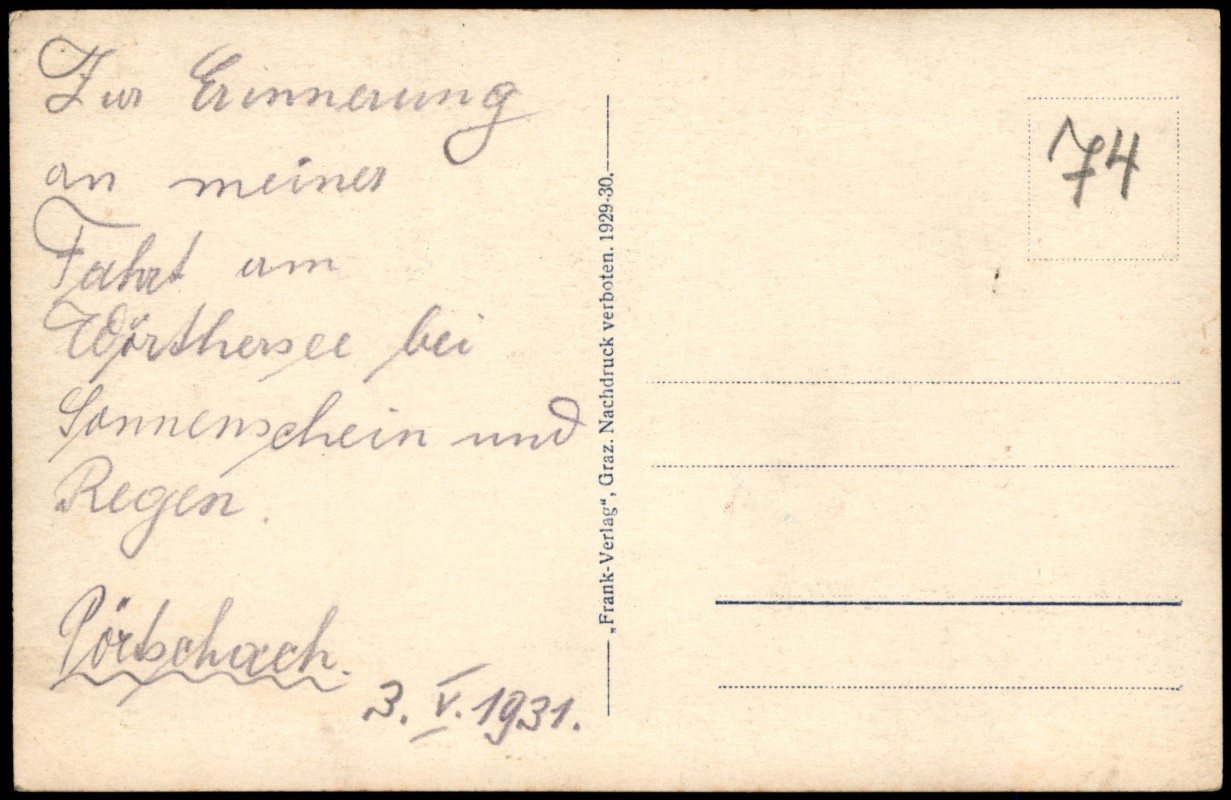 Zur Erinnerung
an meiner
Fahrt am
Wörthersee bei
Sonnenschein und
Regen.
Pörtschach.
3. V. 1931.
„Frank-Verlag“, Graz. Nachdruck verboten. 1929-30.
74